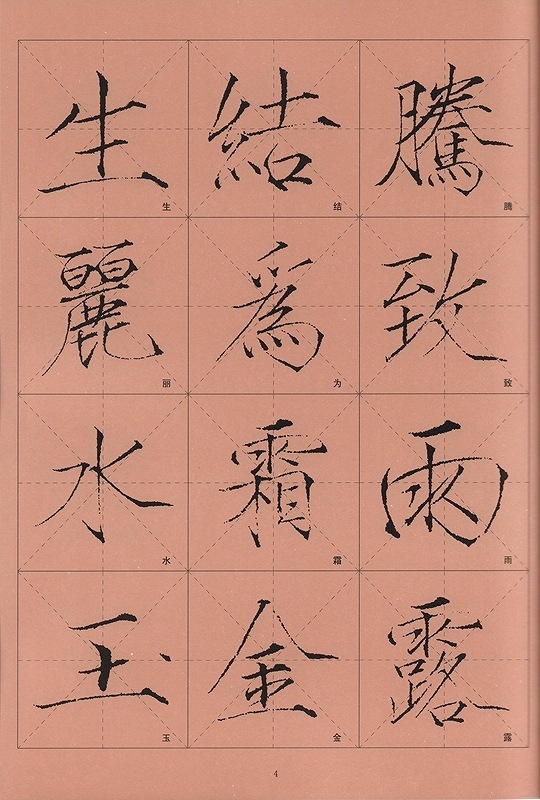 騰致雨露
腾致雨露
結爲霜金
结为霜金
生麗水玉
生丽水玉
4